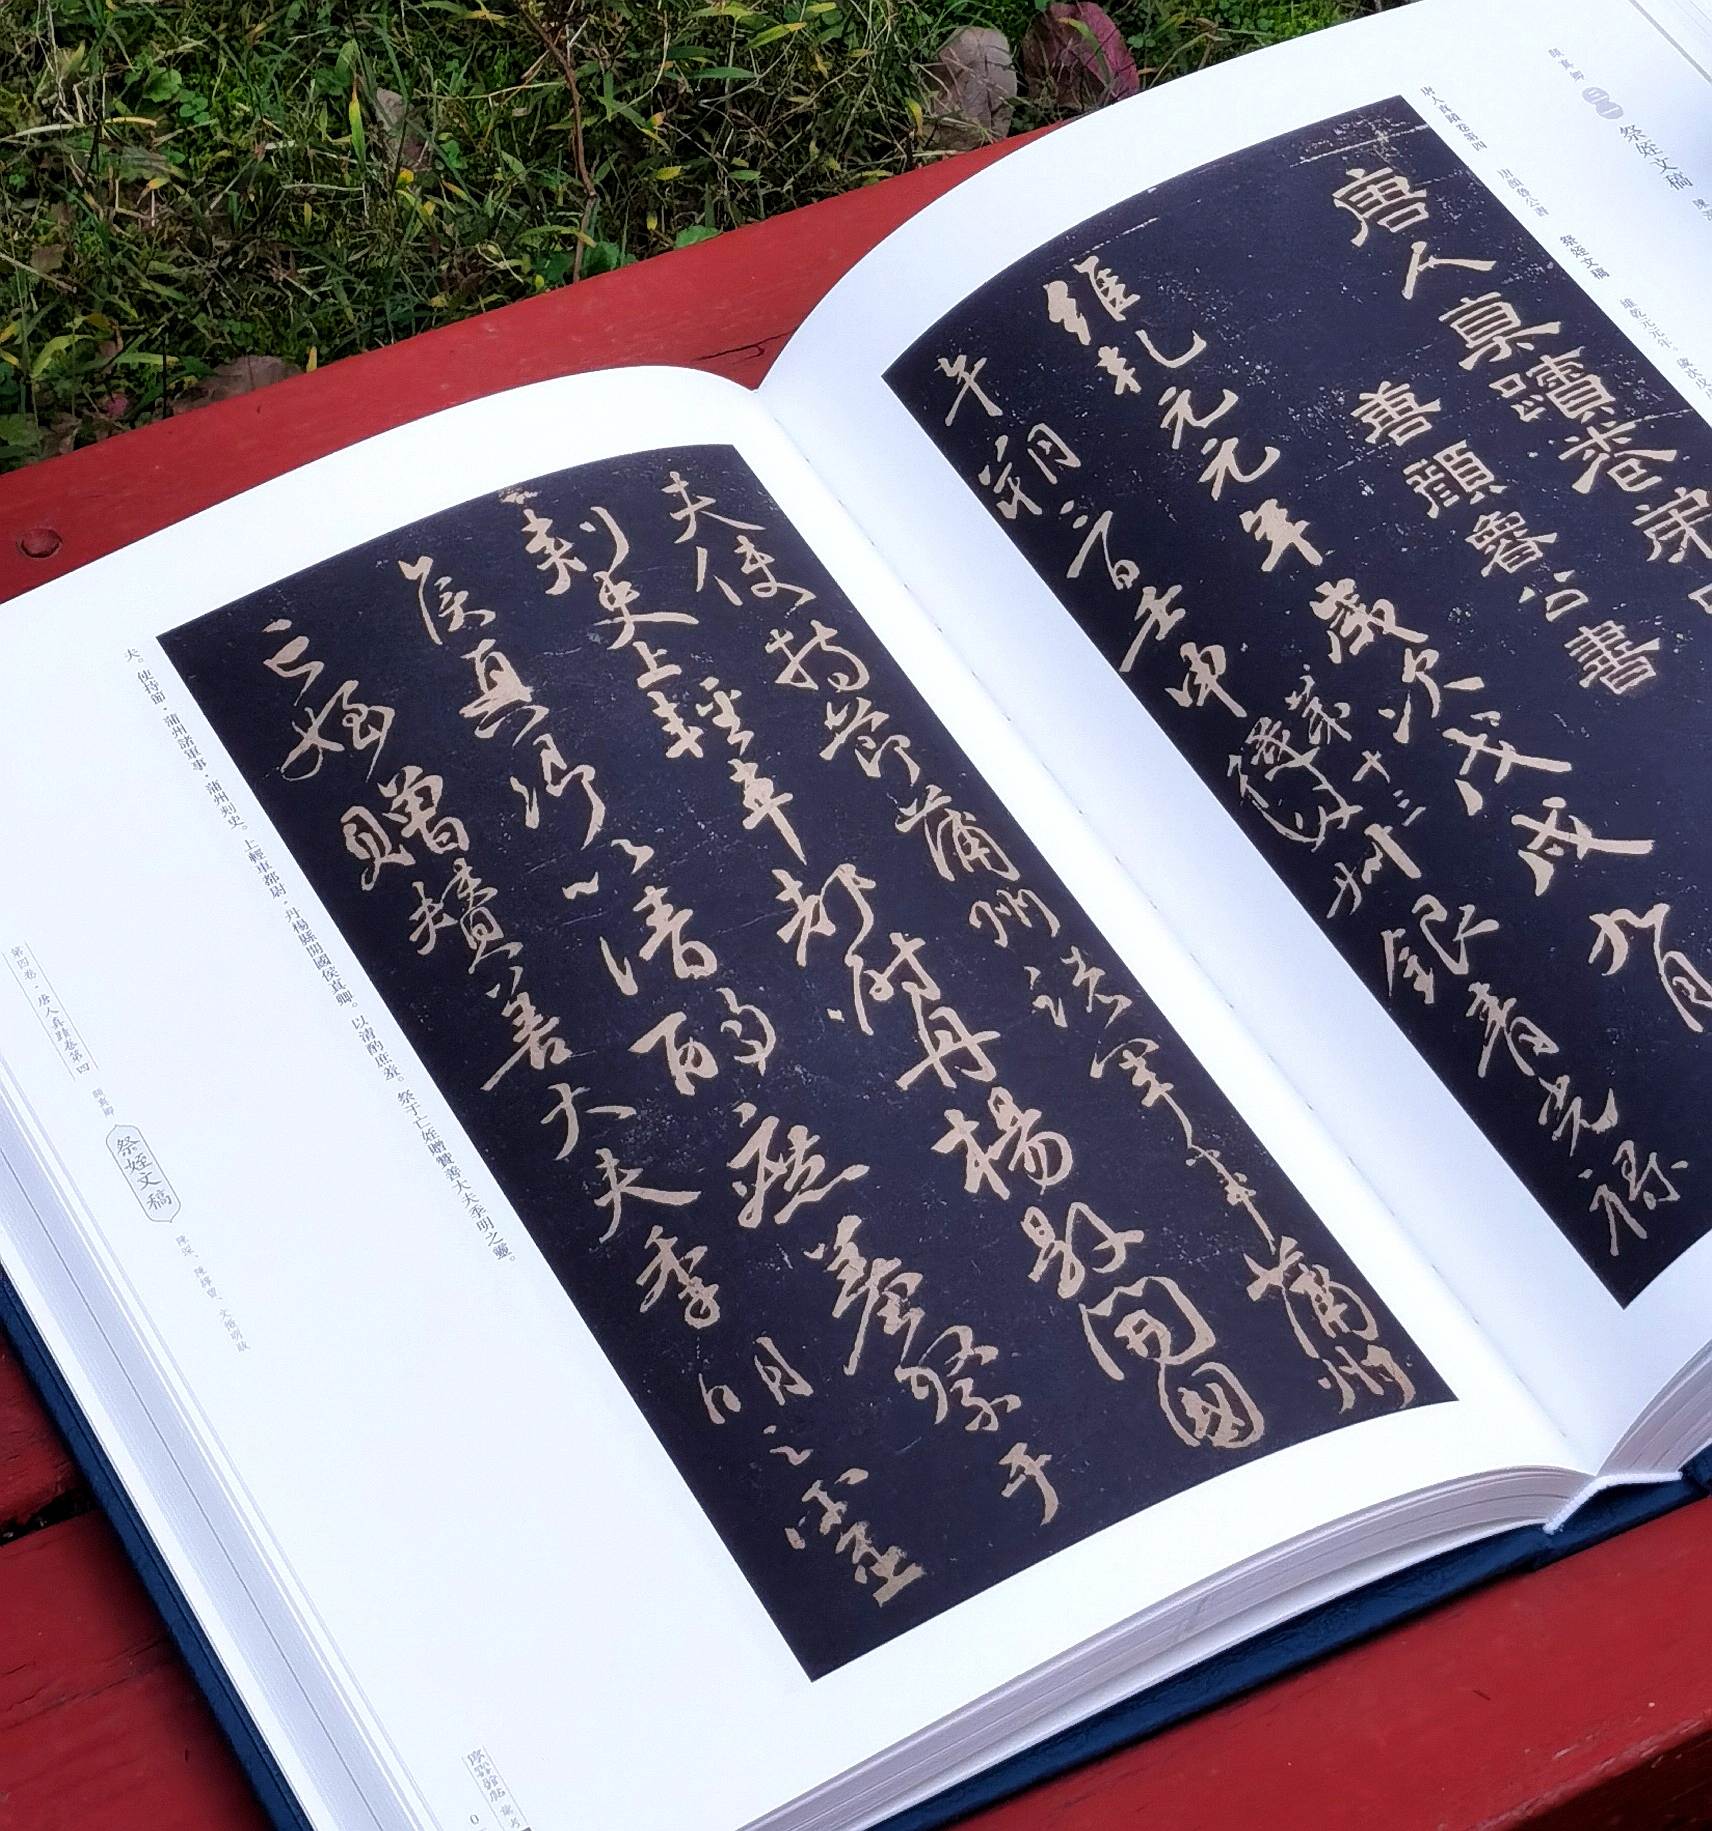 顏真卿
三一
祭姪文稿
唐人真蹟卷第四
唐顏魯公書
祭姪文稿
維乾元元年。歲次戊
唐人真蹟卷第四
唐顏魯公書
維乾元元年歲次戊戌九月
午朔三日壬申
第十三
銀青光祿
夫使持節蒲州諸軍事蒲州
刺史上輕車都尉丹楊縣開國
侯真卿以清酌庶羞祭于
亡姪贈贊善大夫季明之靈
夫。使持節·蒲州諸軍事·蒲州刺史。上輕車都尉·丹楊縣開國侯真卿。以清酌庶羞。祭于亡姪贈贊善大夫季明之靈。
第四卷·唐人真蹟卷第四
顏真卿
祭姪文稿
陳深、陳繹曾、文徵明跋